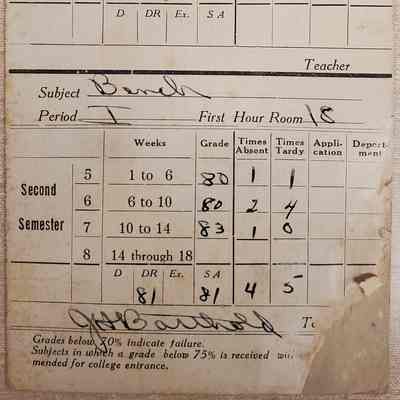 D DR Ex. S A
Teacher
Subject Bench
Period I First Hour Room 18
Weeks Grade Times Absent Times Tardy Appli-cation Deport-ment
Second Semester
5 1 to 6 80 1 1
6 6 to 10 80 2 4
7 10 to 14 83 1 0
8 14 through 18
D DR Ex. S A
81 81 4 5
J H Barthold
Grades below 70% indicate failure.
Subjects in which a grade below 75% is received
mended for college entrance.